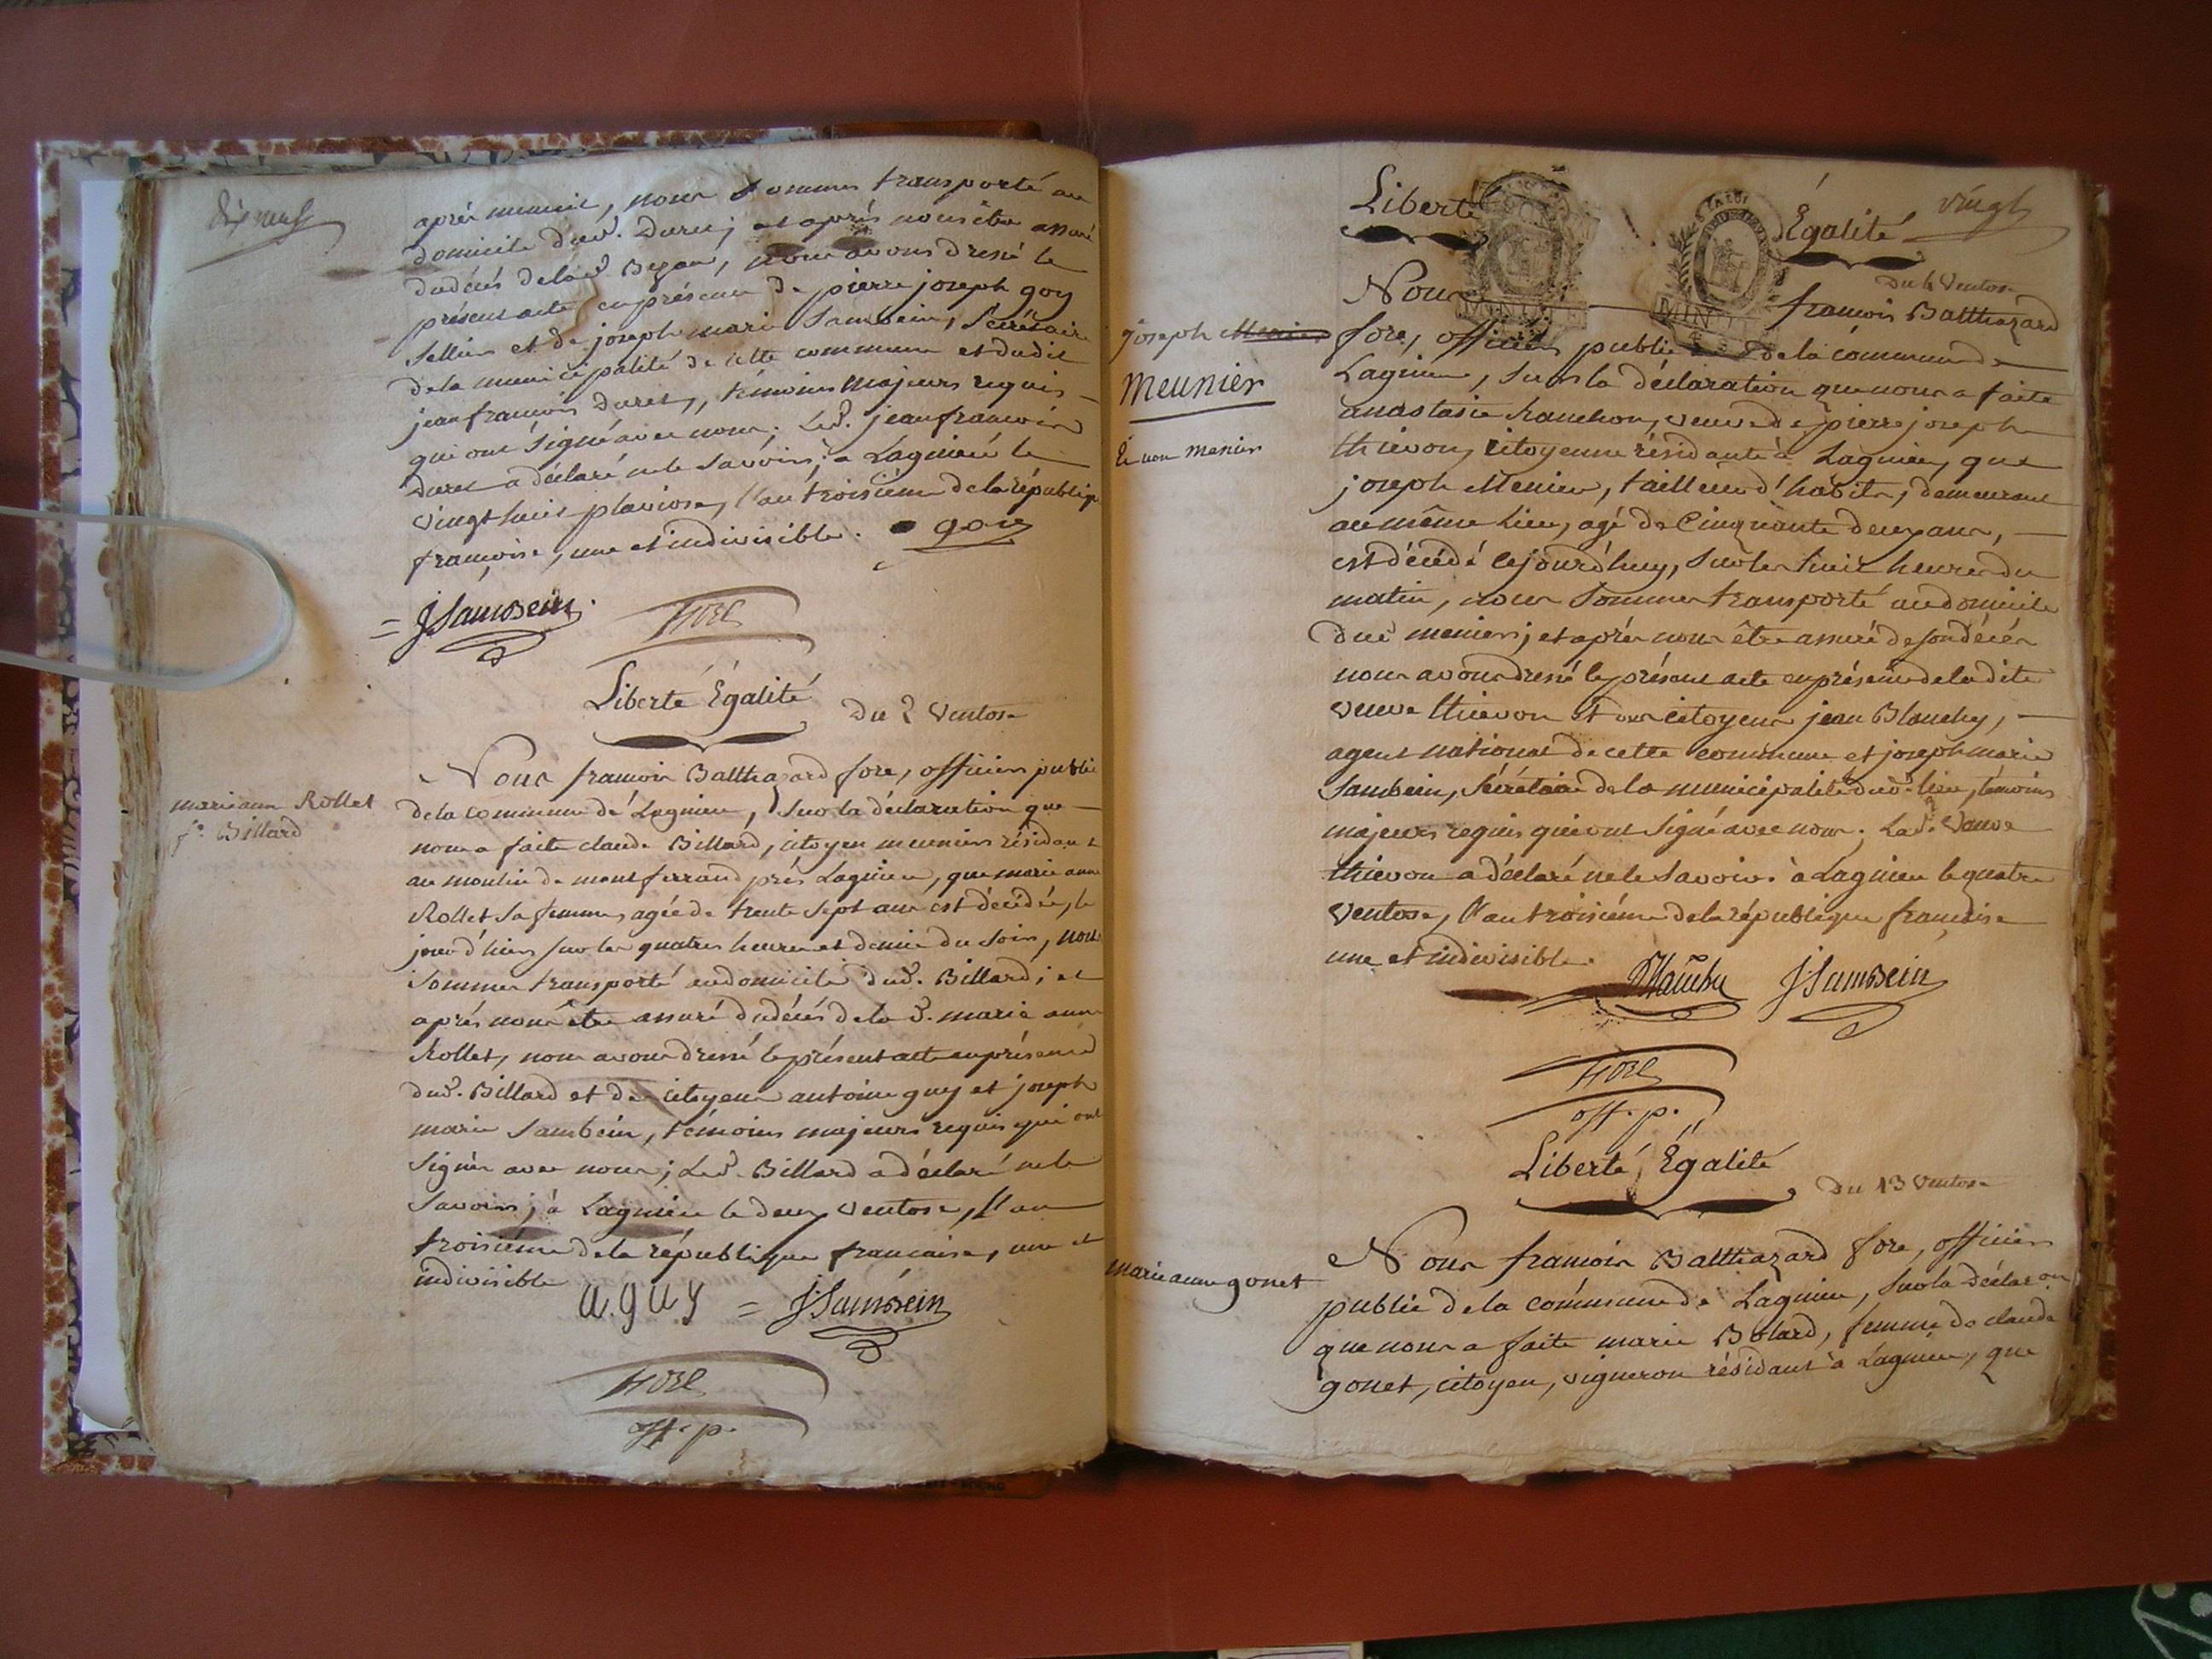 dix neuf
après minuit, nous sommes transporté au
domicile dud. Duret; et après nous être assuré
du décés de la d. Bezan, nous avons dressé le
présent acte en présence de pierre joseph goy
sellier et de joseph marie Sambein, Sécrétaire
de la municipalité de cette commune et dudit
jean françois duret, témoins majeurs requis
qui ont signé avec nous; Led. jean françois
Duret a déclaré ne le savoir; à Lagnieu le
vingt huit pluviose, l'an troisième de la républiq
françoise, une et indivisible. goy
= J Sambein.
fore
Liberté Égalité
Du 2 Ventose
Nous francois Balthazard fore, officier public
marie anne Rollet
fe. Billard
de la commune de Lagnieu, sur la déclaration que
nous a faite claude Billard, citoyen meunier résidant
au moulin de montferrand près Lagnieu, que marie anne
Rollet sa femme, agée de trente sept ans est décédée, le
jour d'hier sur les quatres heures et demie du soir, nous
sommes transporté au domicile dud. Billard; et
après nous être assuré du décés de la d. marie anne
Rollet, nous avons dressé le présent acte en présence
dud. Billard et des citoyens antoine guy et joseph
marie Sambein, témoins majeurs requis qui ont
signés avec nous; Led. Billard a déclaré ne le
savoir; à Lagnieu le deux ventose, l'an
troisième de la république francaise, une et
indivisible
a. guy = J Sambein
fore
off. p.
vingt
Liberté Égalité
Du 4 Ventose
Nous francois Balthazard
joseph Menier
Meunier
Et non menier
fore, officier public de la commune de
Lagnieu, sur la déclaration que nous a faite
anastasie franchon, veuve de pierre joseph
thievon, citoyenne résidante à Lagnieu, que
joseph Menier, tailleur d'habits, demeurant
au même lieu, agé de Cinquante deux ans,
est décédé cejourd'huy, sur les huit heures du
matin, nous sommes transporté au domicile
dud menier; et après nous être assuré de son décés
nous avons dressé le présent acte en présence de la dite
veuve thievon et des citoyens jean Blanchy,
agent national de cette commune et joseph marie
Sambein, sécrétaire de la municipalité dud. lieu, témoins
majeurs requis qui ont signé avec nous; La d. Veuve
thievon a déclaré ne le savoir. à Lagnieu le quatre
Ventose, l'an troisième de la république francaise
une et indivisible.
J Sambein
fore
off. p.
Liberté, Égalité
Du 13 Ventose
marie anne gonet
Nous francois Balthazard fore, officier
public de la commune de Lagnieu, sur la déclaron
que nous a faite marie Bolard, femme de claude
gonet, citoyen, vigneron résidant à Lagnieu, que